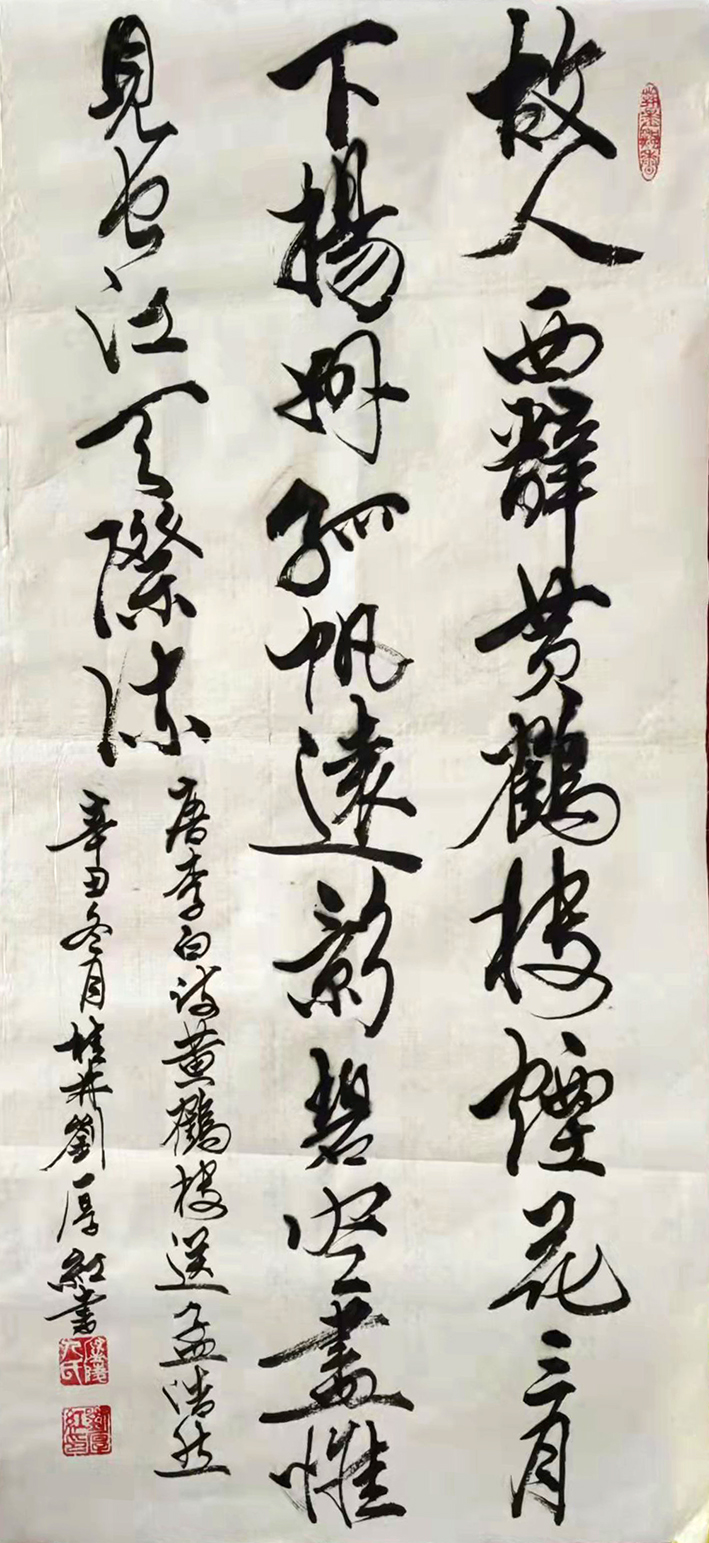 故人西辭黄鶴樓煙花三月
下揚州孤帆遠影碧空盡惟
見長江天際流
唐李白詩黄鶴樓送孟浩然
辛丑冬月桂林劉厚紅書